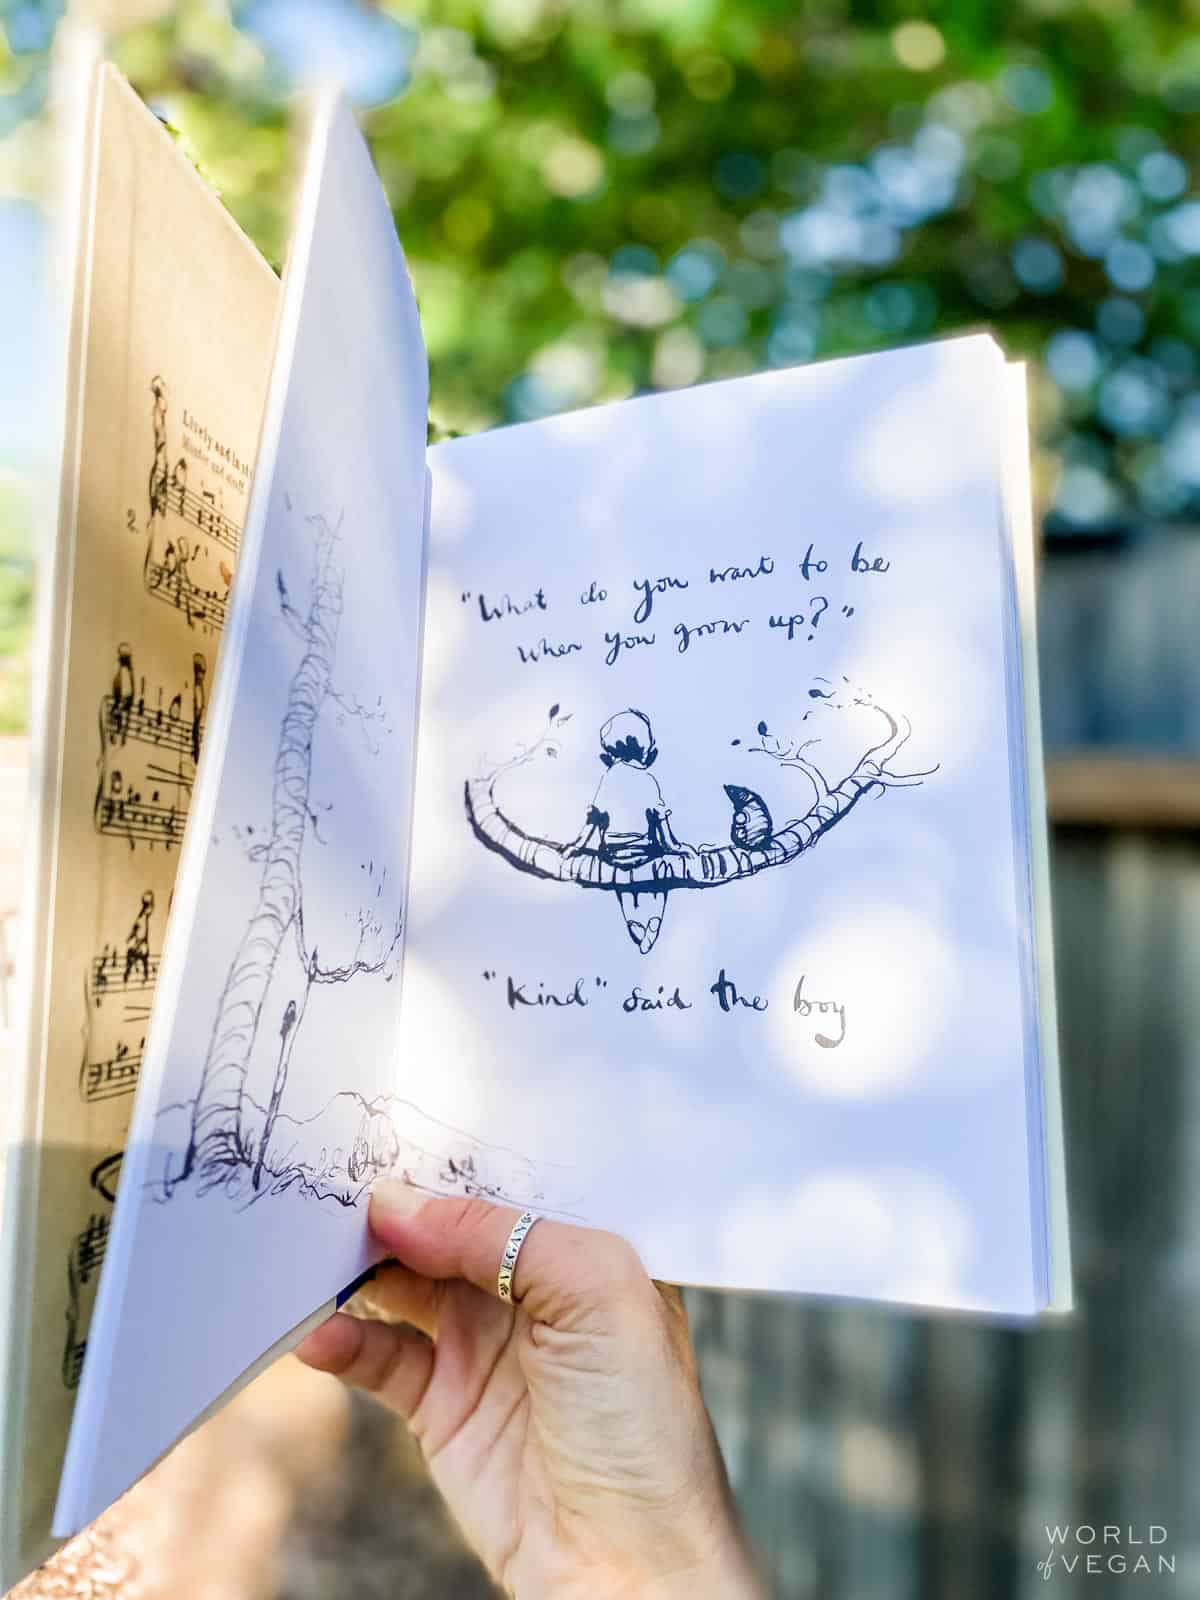 Lively and in st
Master and
2.
"What do you want to be
when you grow up?"
"Kind" said the boy
VEGAN
WORLD
of VEGAN